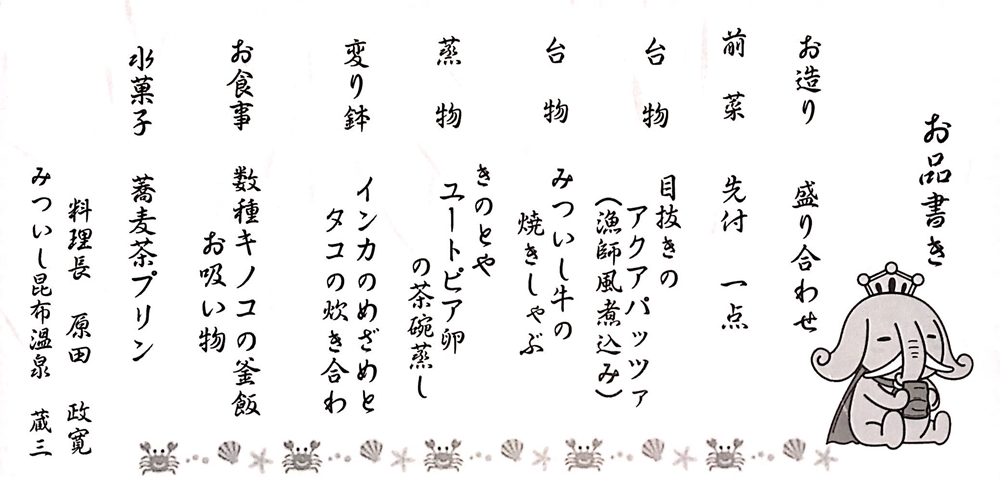 お品書き
お造り 盛り合わせ
前菜 先付 一点
台物 目抜きの
アクアパッツァ
（漁師風煮込み）
台物 みついし牛の
焼きしゃぶ
蒸物 きのとや
ユートピア卵
の茶碗蒸し
変り鉢 インカのめざめと
タコの炊き合わ
お食事 数種キノコの釜飯
お吸い物
水菓子 蕎麦茶プリン
料理長 原田 政寛
みついし昆布温泉 蔵三